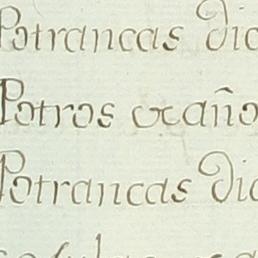 Potrancas dic
Potros de año
Potrancas dic